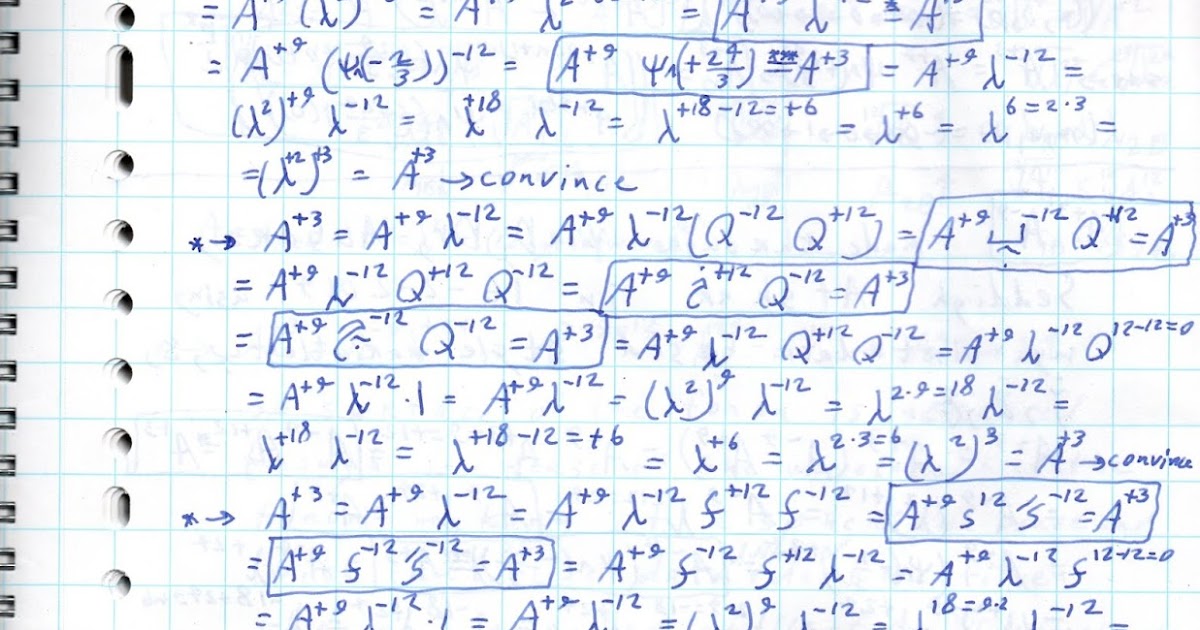 = A⁺⁹ (λ) = A⁺⁹ = A
= A⁺⁹ (ψη(-2/3))⁻¹² = A⁺⁹ ψη(+24/3) ≝ A⁺³ = A⁺⁹ λ⁻¹² =
(λ²)⁺⁹ λ⁻¹² = λ⁺¹⁸ λ⁻¹² = λ⁺¹⁸⁻¹²⁼⁺⁶ = λ⁺⁶ = λ⁶⁼²·³ =
=(λ⁺²)⁺³ = A⁺³ → convince
* → A⁺³ = A⁺⁹ λ⁻¹² = A⁺⁹ λ⁻¹² (Q⁻¹² Q⁺¹²) = A⁺⁹ ⁻¹² Q⁺¹² = A⁺³
= A⁺⁹ λ⁻¹² Q⁺¹² Q⁻¹² = A⁺⁹ ⁺¹² Q⁻¹² = A⁺³
= A⁺⁹ ⁻¹² Q⁻¹² = A⁺³ = A⁺⁹ λ⁻¹² Q⁺¹² Q⁻¹² = A⁺⁹ λ⁻¹² Q¹²⁻¹²⁼⁰
= A⁺⁹ λ⁻¹² · 1 = A⁺⁹ λ⁻¹² = (λ²)⁹ λ⁻¹² = λ²·⁹⁼¹⁸ λ⁻¹² =
λ⁺¹⁸ λ⁻¹² = λ⁺¹⁸⁻¹²⁼⁺⁶ = λ⁺⁶ = λ²·³⁼⁶ = (λ²)³ = A⁺³ → convince
* → A⁺³ = A⁺⁹ λ⁻¹² = A⁺⁹ λ⁻¹² f⁺¹² f⁻¹² = A⁺⁹ s¹² ⁻¹² = A⁺³
= A⁺⁹ f⁻¹² ⁻¹² = A⁺³ = A⁺⁹ f⁻¹² f⁺¹² λ⁻¹² = A⁺⁹ λ⁻¹² f¹²⁻¹²⁼⁰
= A⁺⁹ λ⁻¹² · 1 = A⁺⁹ λ⁻¹² = (λ²)⁹ λ⁻¹² = λ¹⁸⁼⁹·² λ⁻¹² =